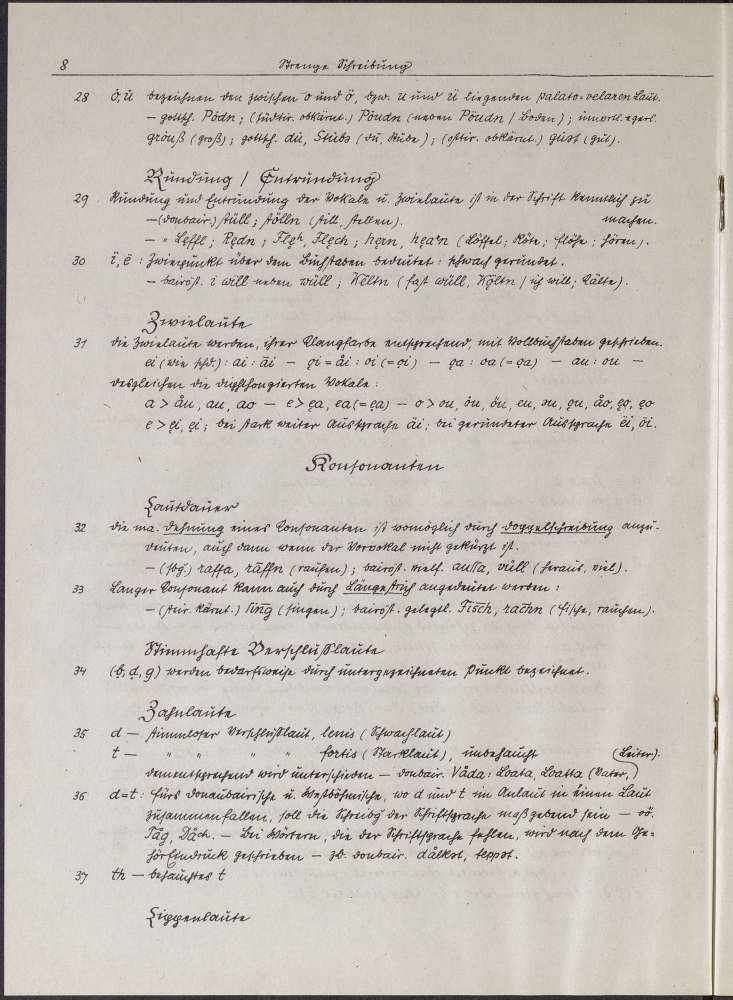 8 Strenge Schreibung
28 ȯ, u̇ bezeichnen den zwischen o und ö, bzw. u und ü liegenden palato-velaren Laut.
— gottsch. Pȯdn; (südtir. obkärnt.) Pȯudn (neben Pöudn / Boden); innvrtl. egerl.
grȯuß (groß); gottsch. du̇, Stu̇bə (du, Stube); (osttir. obkärnt.) gu̇ət (gut).
Rundung / Entrundung
29 Rundung und Entrundung der Vokale u. Zwielaute ist in der Schrift kenntlich zu
—(donbair.) stüll; stölln (still, stellen). machen.
— " Leffl; Redn; Fleh, Flech; hern, hearn (Löffel; Röte; Flöhe; hören).
30 ï, ë : Zwiepunkt über dem Buchstaben bedeutet: schwach gerundet.
— bairöst. i wïll neben wüll; Këltn (fast wüll, Költn / ich will; Kälte).
Zwielaute
31 die Zwielaute werden, ihrer Klangfarbe entsprechend, mit Vollbuchstaben geschrieben.
ei (wie schd.): ai : äi — ǫi = åi : oi (= ọi) — ǫa : oa (= ọa) — au : ou —
desgleichen die diphthongierten Vokale:
a > åu, au, ao — e > ęa, ea (= ẹa) — o > ou, ȯu, öu, eu, əu, ǫu, åo, ęo, ẹo
e > ęi, ẹi; bei stark weiter Aussprache äi; bei gerundeter Aussprache ëi, öi.
Konsonanten
Lautdauer
32 die ma. Dehnung eines Konsonanten ist womöglich durch Doppelschreibung anzu-
deuten, auch dann wenn der Vorvokal nicht gekürzt ist.
— (sbg.) raffa, rāffn (raufen); bairöst. vielf. aussa, vüll (heraus, viel).
33 Langer Konsonant kann auch durch Längestrich angedeutet werden:
— (steir. kärnt.) sing (singen); bairöst. gelegtl. Fisch, rachn (Fische, rauchen).
Stimmhafte Verschlußlaute
34 (ḅ, ḍ, g̣) werden bedarfsweise durch untergezeichneten Punkt bezeichnet.
Zahnlaute
35 d — stimmloser Verschlußlaut, lenis (Schwachlaut)
t — " " " " fortis (Starklaut), unbehaucht
dementsprechend wird unterschieden — donbair. Våda: Loata, Loatta (Vater, Leiter).
36 d=t: fürs Donaubairische u. Westböhmische, wo d und t im Anlaut in einen Laut
zusammenfallen, soll die Schreibg der Schriftsprache maßgebend sein — oö.
Tåg, Dåch. — Bei Wörtern, die der Schriftsprache fehlen, wird nach dem Ge-
höreindruck geschrieben — zb. donbair. dålkət, teppət.
37 th — behauchtes t
Lippenlaute